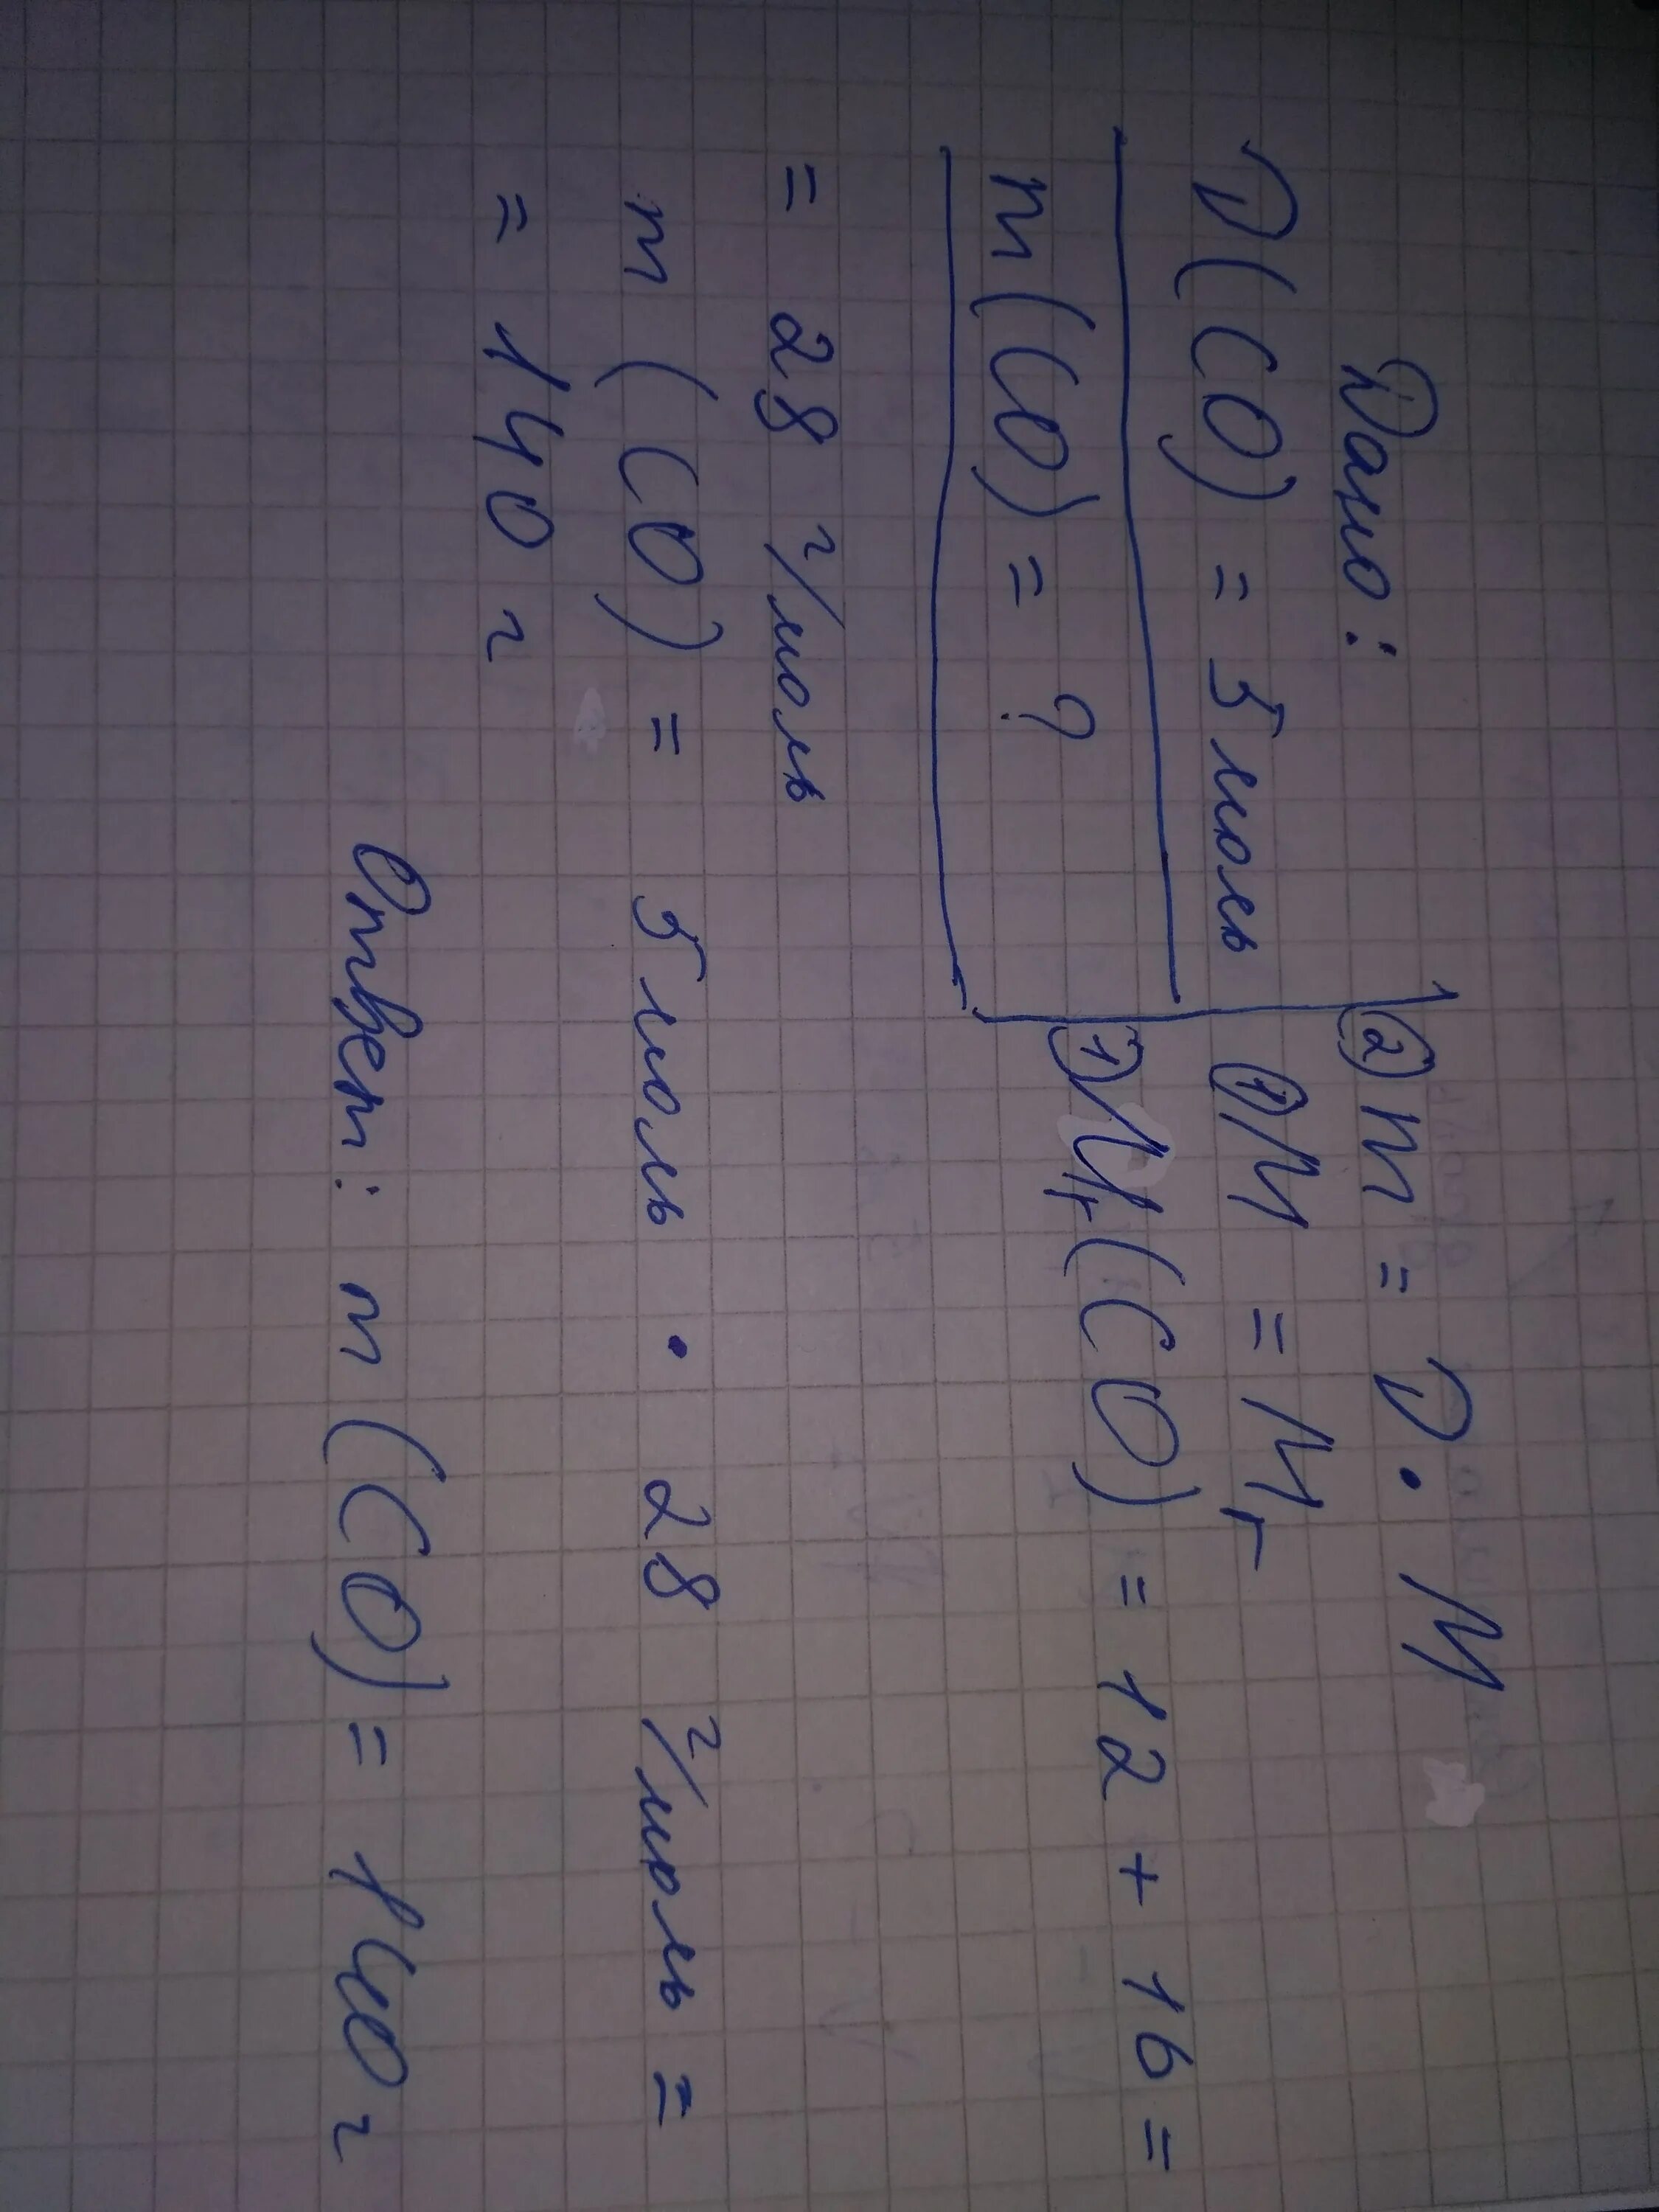 Дано:
② m = ν · M
ν(CO) = 5 моль
① M = Mr
m(CO) = ?
① Mr(CO) = 12 + 16 =
= 28 г/моль
m (CO) = 5 моль · 28 г/моль =
= 140 г
Ответ: m (CO) = 140 г